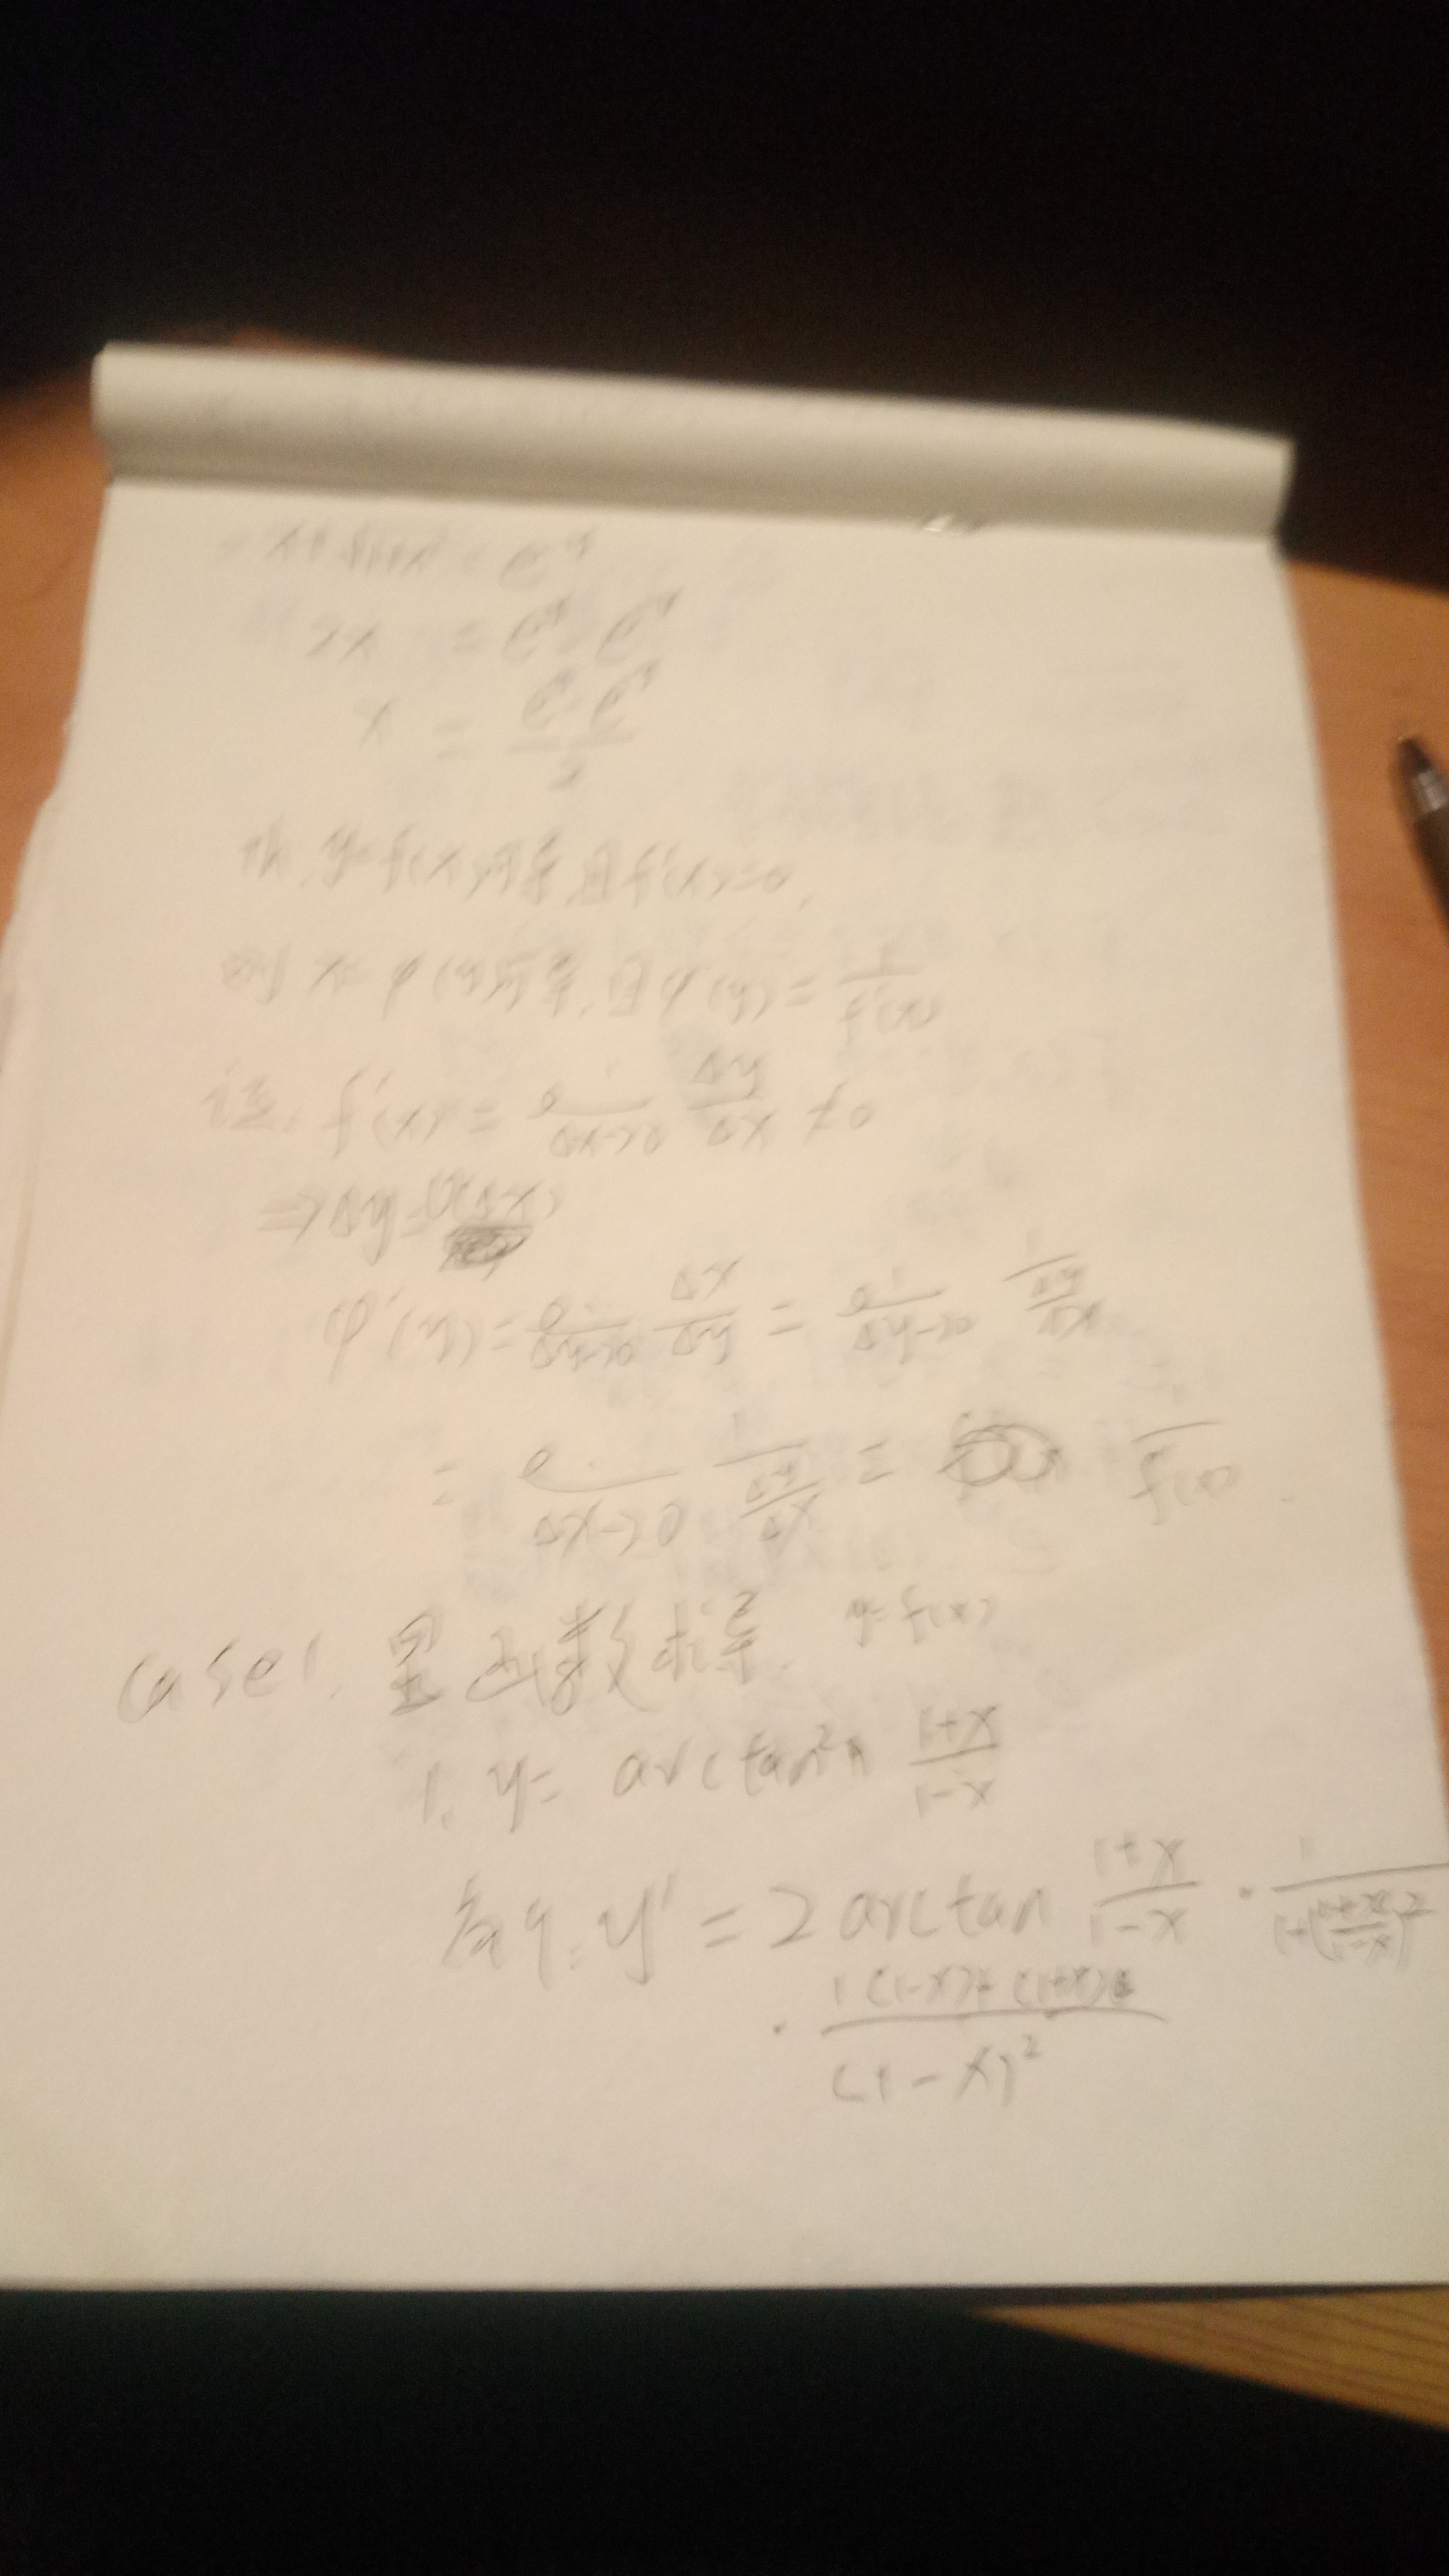 -x+√1+x² = e^-y
2x = e^y - e^-y
x = (e^y - e^-y)/2
y=f(x)可导,且f'(x)=0,
则 x=φ(y)可导,且φ'(y) = 1/f'(x)
证: f'(x) = lim Δx->0 Δy/Δx ≠0
=>Δy=O(Δx)
φ'(y)=lim Δy->0 Δx/Δy = lim Δy->0 1/(Δy/Δx)
= lim Δx->0 1/(Δy/Δx) = 1/f'(x)
Case1. 显函数求导. y=f(x)
1. y= arctan² (1+x)/(1-x)
y' = 2 arctan (1+x)/(1-x) · 1/(1+((1+x)/(1-x))²)
· (1(1-x)+(1+x))/(1-x)²